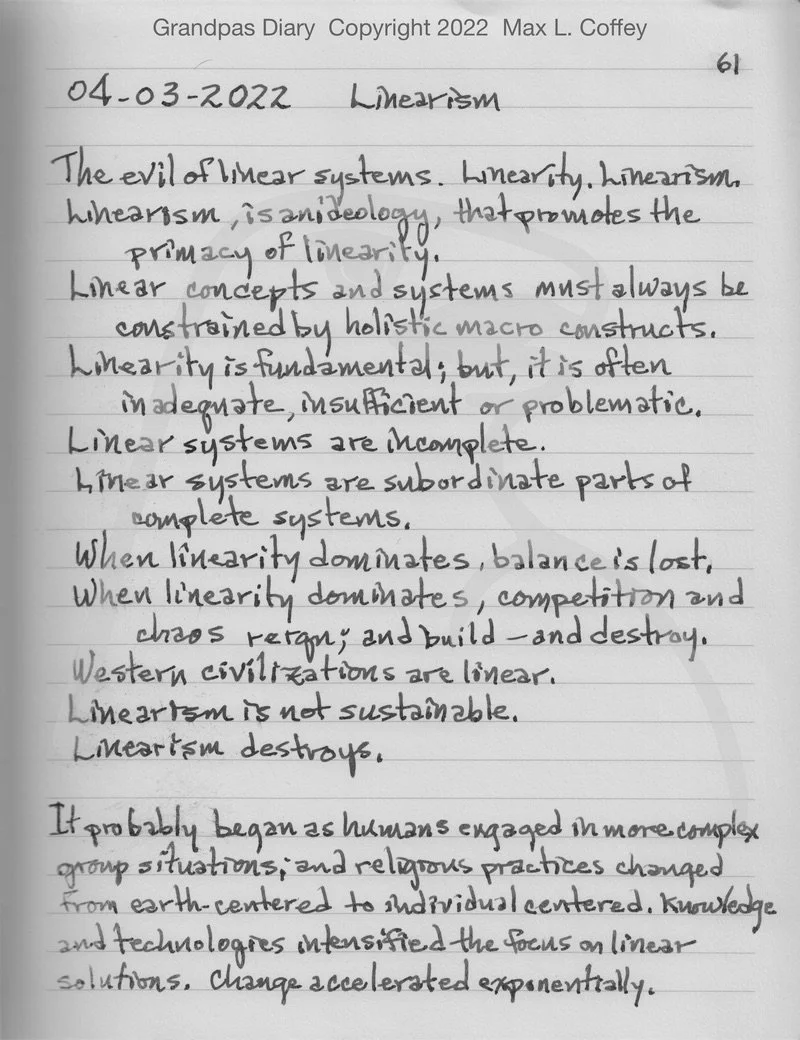 Grandpas Diary Copyright 2022 Max L. Coffey
61
04-03-2022 Linearism
The evil of linear systems. Linearity. Linearism.
Linearism, is an ideology, that promotes the
primacy of linearity.
Linear concepts and systems must always be
constrained by holistic macro constructs.
Linearity is fundamental; but, it is often
inadequate, insufficient or problematic.
Linear systems are incomplete.
Linear systems are subordinate parts of
complete systems.
When linearity dominates, balance is lost.
When linearity dominates, competition and
chaos reign; and build - and destroy.
Western civilizations are linear.
Linearism is not sustainable.
Linearism destroys.
It probably began as humans engaged in more complex
group situations; and religious practices changed
from earth-centered to individual centered. Knowledge
and technologies intensified the focus on linear
solutions. Change accelerated exponentially.